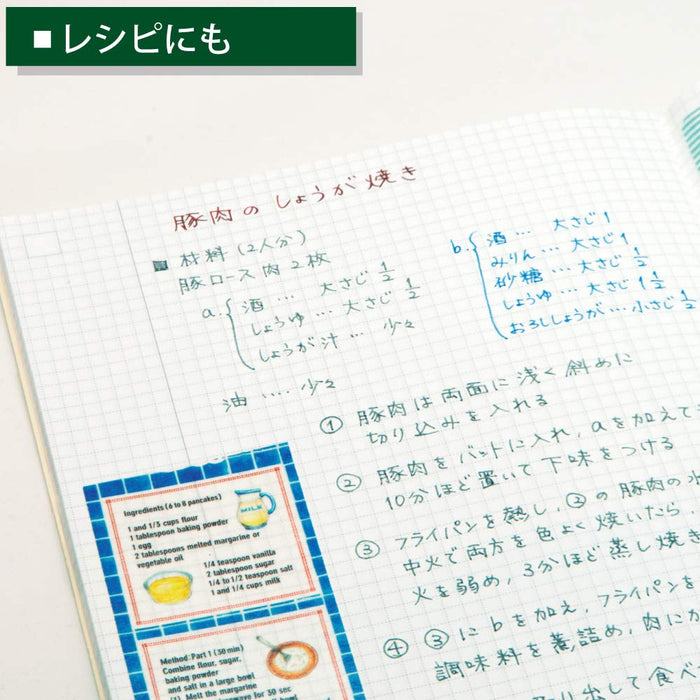 ■レシピにも
豚肉のしょうが焼き
■ 材料(2人分)
豚ロース肉2枚
a. 酒… 大さじ1/2
しょうゆ… 大さじ1/2
しょうが汁… 少々
油…. 少々
b. 酒… 大さじ1
みりん… 大さじ1
砂糖… 大さじ1/2
しょうゆ… 大さじ1 1/2
おろししょうが… 小さじ1/2
① 豚肉は両面に浅く斜めに
切り込みを入れる
② 豚肉をバットに入れ、aを加えて
10分ほど置いて下味をつける
③ フライパンを熱し、②の豚肉の水
中火で両方を色よく焼いたら
火を弱め、3分ほど蒸し焼き
④ ③にbを加え、フライパンを
調味料を煮詰め、肉にか
出して食べ
Ingredients (6 to 8 pancakes)
1 and 1/5 cups flour
1 tablespoon baking powder
1 egg
2 tablespoons melted margarine or
vegetable oil
1/4 teaspoon vanilla
2 tablespoon sugar
1/4 to 1/2 teaspoon salt
1 and 1/4 cups milk
MILK
Method: Part 1 (30 min)
Combine flour, sugar,
baking powder
and salt in a large bowl
(1) Melt the margarine
for 30 sec
bowl